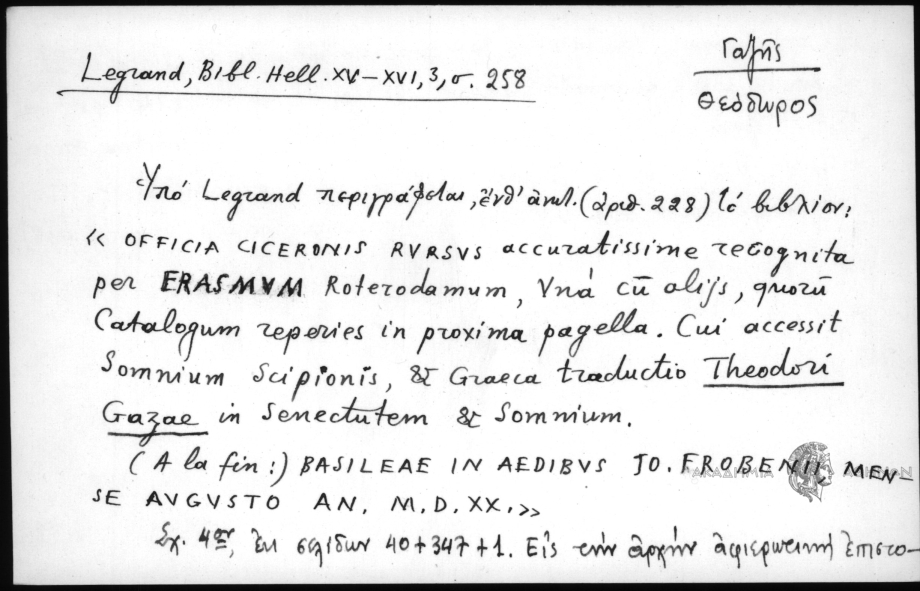 Legrand, Bibl. Hell. XV–XVI, 3, σ. 258
Γαζῆς
Θεόδωρος
Ὑπό Legrand περιγράφεται, ἔνθ' ἀνωτ. (ἀριθ. 228) τό βιβλίον:
« OFFICIA CICERONIS RVRSVS accuratissime recognita
per ERASMVM Roterodamum, Vná cū alijs, quorū
Catalogum reperies in proxima pagella. Cui accessit
Somnium Scipionis, & Graeca traductio Theodori
Gazae in Senectutem & Somnium.
(A la fin:) BASILEAE IN AEDIBVS JO. FROBENII, MEN-
SE AVGVSTO AN. M.D.XX.»
ΑΚΑΔΗΜΙΑ ΑΘΗΝΩΝ
Σχ. 4ον, ἐκ σελίδων 40+347+1. Εἰς τήν ἀρχήν ἀφιερωτική ἐπιστο-